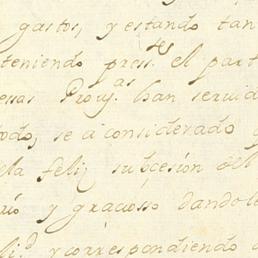 gastos, y estando tan
teniendo press.tes el part
essas Prov.as han servid
odo, se á considerado
la feliz subcesión del
rio y gracioso dandole
li.d y correspondiendo